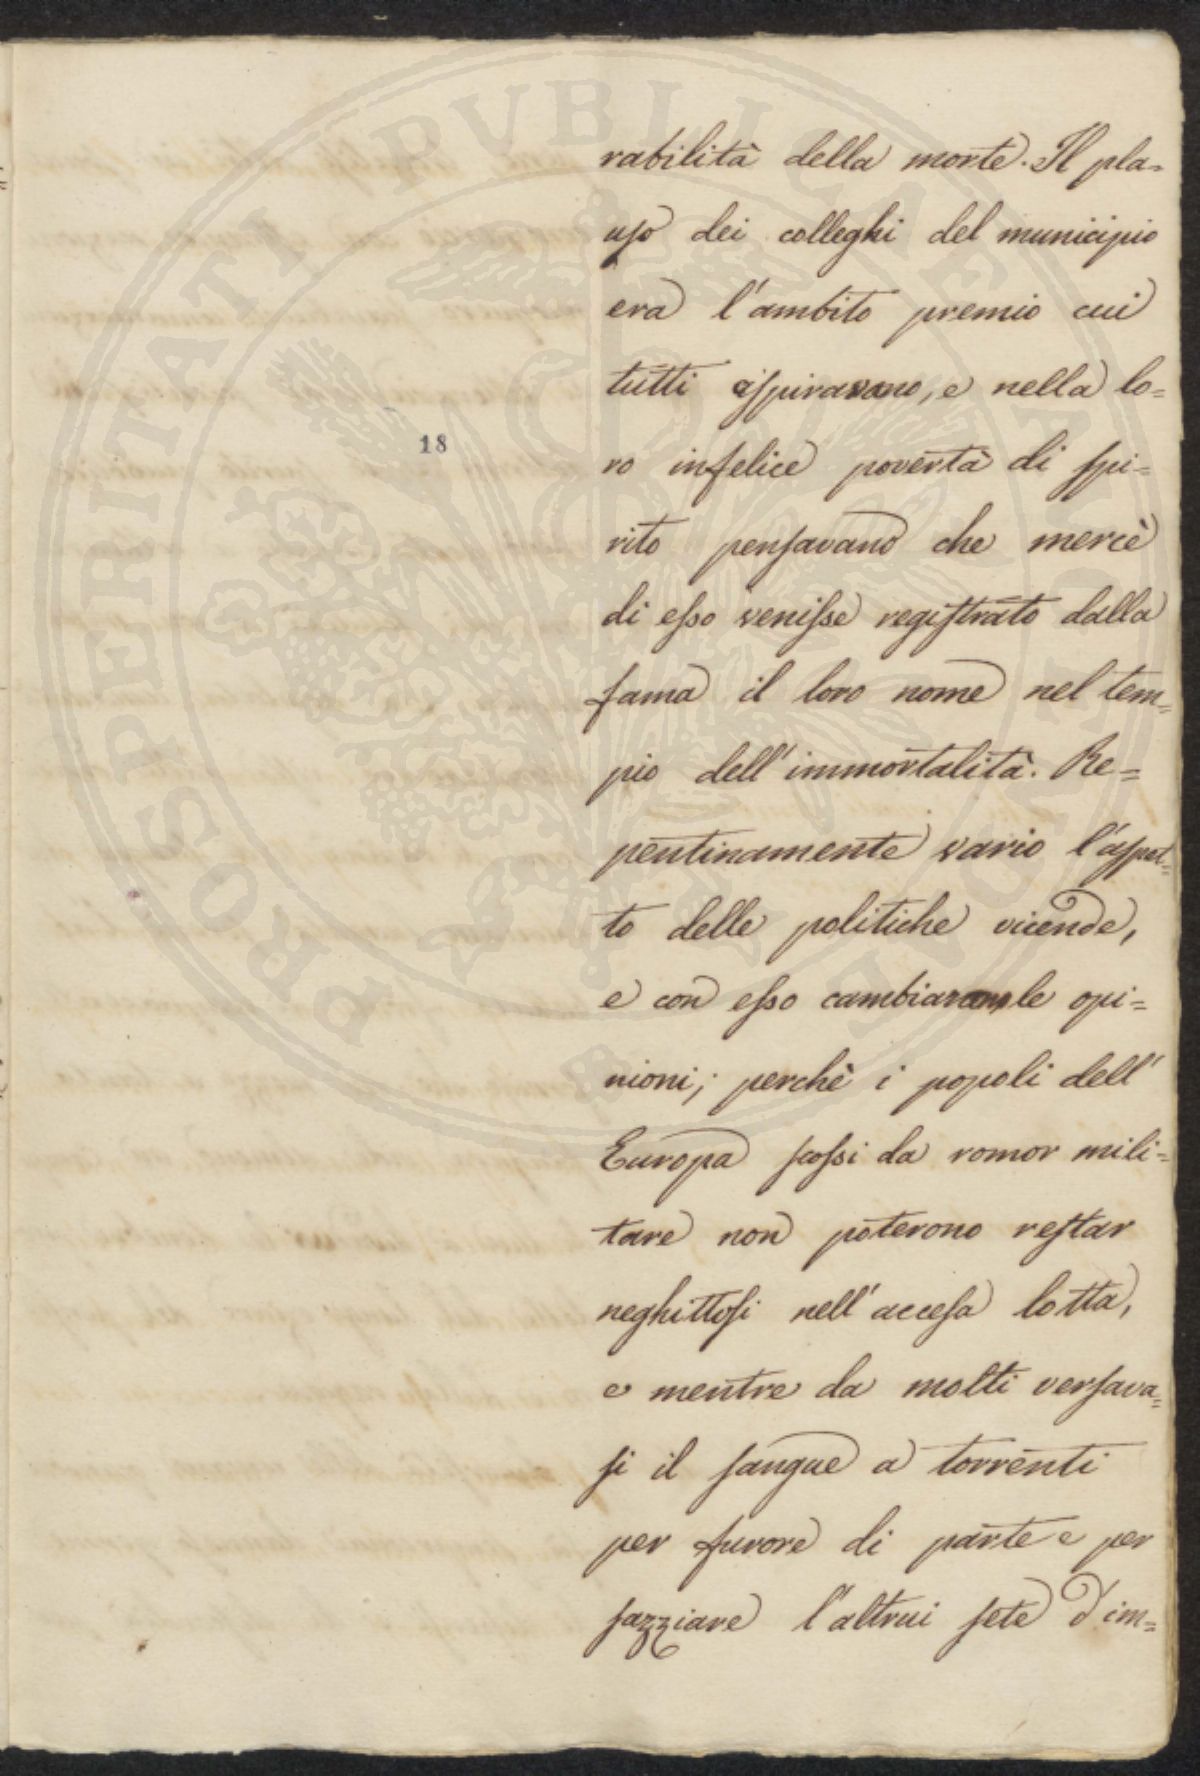 PROSPERITATI PUBLICAE AUGENDAE
18
rabilità della morte. Il pla=
uso dei colleghi del municipio
era l'ambito premio cui
tutti aspiravano, e nella lo=
ro infelice povertà di spi=
rito pensavano che mercè
di esso venisse registrato dalla
fama il loro nome nel tem=
pio dell'immortalità. Re=
pentinamente vario l'aspet=
to delle politiche vicende,
e con esso cambiaron le opi=
nioni; perchè i popoli dell'
Europa scossi da romor mili=
tare non poterono restar
neghittosi nell'accesa lotta,
e mentre da molti versava=
si il sangue a torrenti
per furore di parte e per
sazziare l'altrui sete d'im=